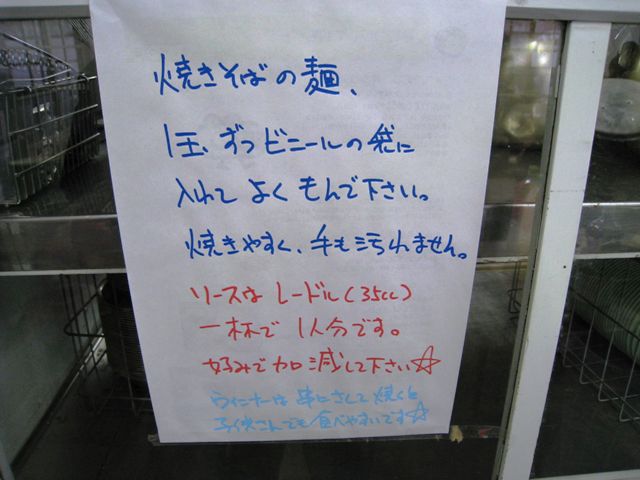 焼きそばの麺、
1玉ずつビニールの袋に
入れて よく もんで下さい。
焼きやすく、手も汚れません。
ソースは レードル(35cc)
一杯で 1人分です。
好みで加減して下さい☆
ウィンナーは 串にさして 焼くと
子供さんでも 食べやすいです☆